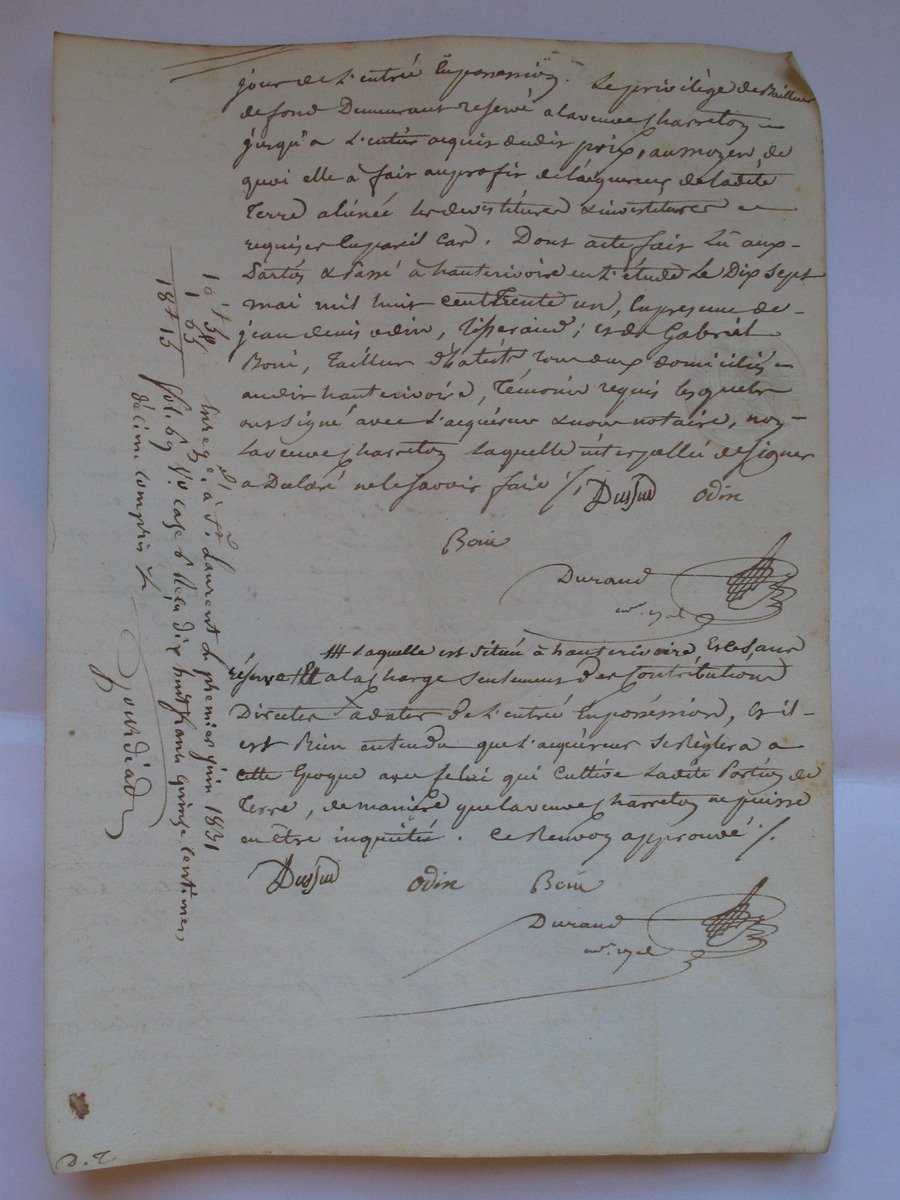 jour de l'entrée en possession. Le privilège de Bailleur
de fond Demeurant reservé a la veuve Charreton
jusqu'a l'entier acquis dudit prix, au moyen de
quoi elle à fait au profit de l'acquereur de ladite
Terre aliénée les devestitures & investitures
requises en pareil cas. Dont acte fait Lû aux
Parties & Passé à hauterivoire en l'étude Le Dix sept
mai mil huit cent trente un, en presence de
jean denis odin, Tisserand; et de Gabriel
Boni, Tailleur d'habits tous deux domiciliés
audit hauterivoire, Témoins requis lesquels
ont signé avec l'acquereur & nous notaire, non
La veuve Charreton laquelle interpellée de signer
a Déclaré ne le savoir faire /.
Dussud odin
Boni
Durand
laquelle est située à hauterivoire, Et ce, sans
réserve Et a la charge seulement des Contributions
Directes à dater de l'entrée en possession, Et il
est Bien entendu que l'acquéreur se Règlera a
cette Epoque avec celui qui Cultive ladite Portion de
Terre, de manière que la veuve Charreton ne puisse
en être inquiétée. Ce Renvoi approuvé /.
Dussud odin Boni
Durand
1 63
18 15
Enregé. à St. Laurent Le premier juin 1831
fol. 69 Vo case 6 Reçu dix huit francs quinze centimes,
décime compris
D. T.